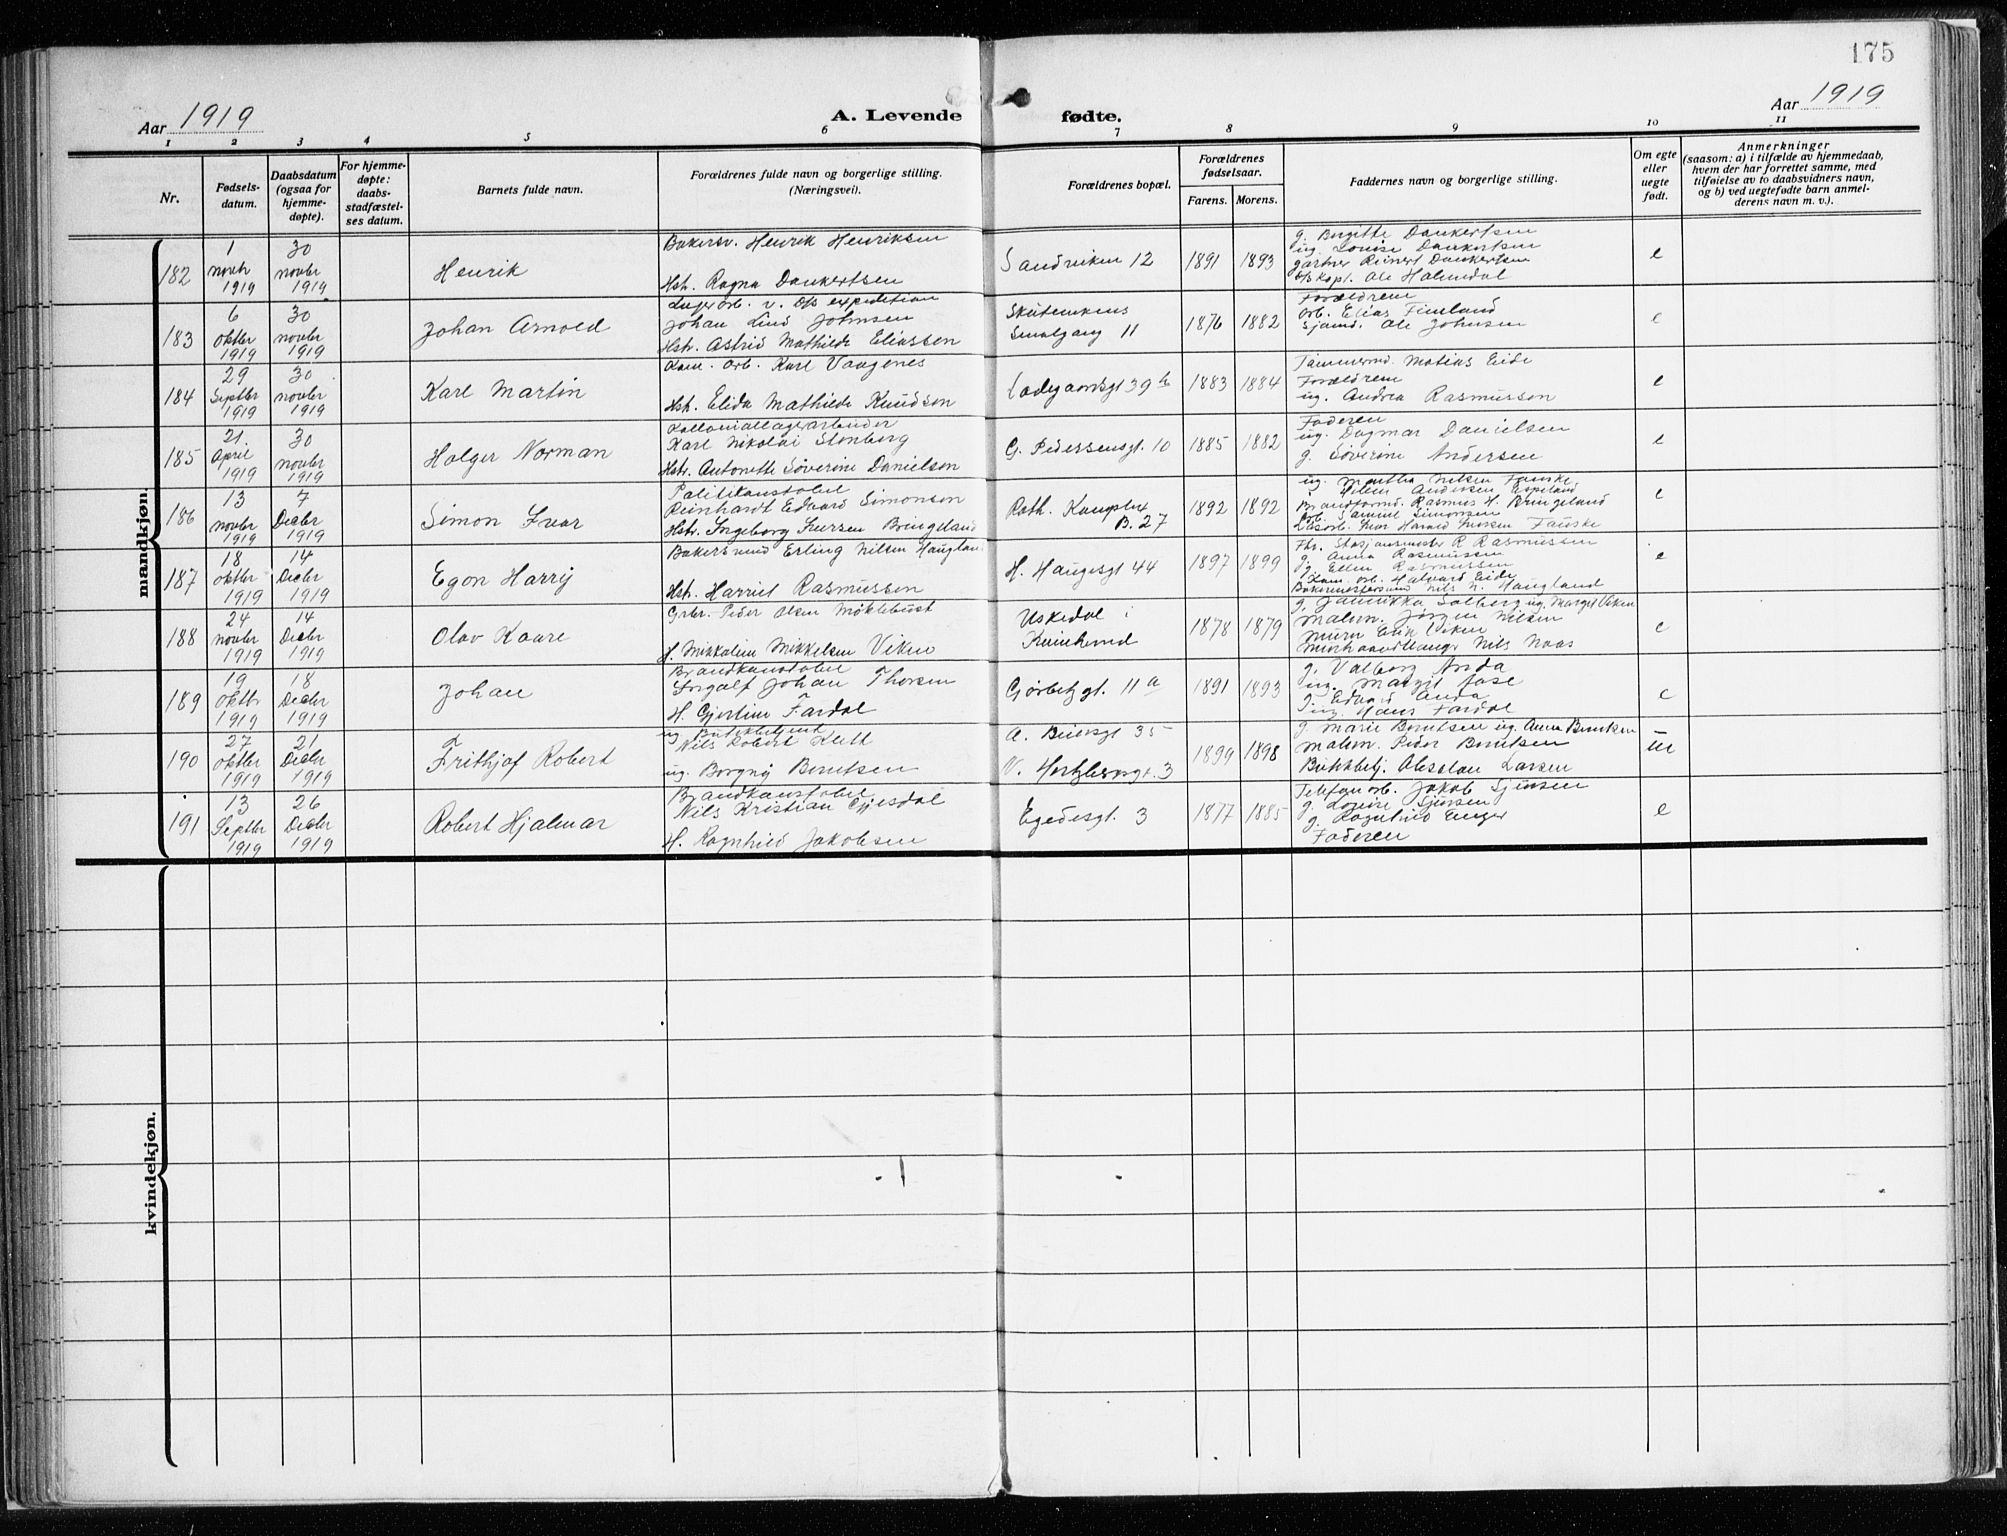 175
Aar 1919
A. Levende fødte.
Aar 1919
1 2 3 4 5 6 7 8 9 10 11
Nr.
Fødsels-
datum.
Daabsdatum
(ogsaa for
hjemme-
døpte).
For hjemme-
døpte:
daabs-
stadfæstel-
ses datum.
Barnets fulde navn.
Forældrenes fulde navn og borgerlige stilling.
(Næringsvei).
Forældrenes bopæl.
Forældrenes
fødselsaar.
Farens. Morens.
Faddernes navn og borgerlige stilling.
Om egte
eller
uegte
født.
Anmerkninger
(saasom: a) i tilfælde av hjemmedaab,
hvem der har forrettet samme, med
tilføielse av to daabsvidners navn,
og b) ved uegtefødte barn anmel-
derens navn m. v.).
mandkjøn.
182
1
novbr
1919
30
novbr
1919
Henrik
Bakersv. Henrik Henriksen
Hst. Ragna Dankertsen
Sandviken 12
1891 1893
g. Birgitte Dankertsen
ug. Louise Dankertsen
gartner Reinert Dankertsen
Ole Halmdal
e
183
6
oktbr
1919
30
novbr
1919
Johan Arnold
Lagerarb. v. D/s expedition
Johan Lind Johnsen
Hst. Astrid Mathilde Eliassen
Skutevikens
Smalgang 11
1876 1882
Forældrene
Arb. Elias Finland
Sjømd. Ole Johnsen
e
184
29
Septbr
1919
30
novbr
1919
Karl Martin
Kom. arb. Karl Vaagenes
Hst. Elida Mathilde Knudsen
Ladegaardsgt 39 b
1883 1884
Tømmermd. Matias Eide
Forældrene
ug. Andrea Rasmussen
e
185
21
April
1919
30
novbr
1919
Holger Norman
Kolloniallagerarbeider
Karl Nikolai Stenberg
Hstr. Antonette Severine Danielsen
G. Pedersensgt. 10
1885 1882
Faderen
ug. Dagmar Danielsen
g. Severine Andersen
e
186
13
novbr
1919
7
Decbr
1919
Simon Ivar
Politikonstabel
Reinhardt Edvard Simonsen
Hst. Ingeborg Iversen Bringeland
Roth. Komplex
B. 27
1892 1892
ug. Martha Nilsen Fauske
Andersen Espeland
Brandformd. Rasmus H. Bringeland
Arb. Samuel Simonsen
Ivar Harald Iversen Fauske
e
187
18
oktbr
1919
14
Decbr
1919
Egon Harry
Bakersvend Erling Nilsen Haugland
Hst. Harriet Rasmussen
H. Haugesgt 44
1897 1899
Fhv. Stasjonsmester R Rasmussen
g. Anna Rasmussen
g. Ellen Rasmussen
Kom. arb. Halvard Eide
Nils N. Haugland
e
188
24
novbr
1919
14
Decbr
1919
Olav Kaare
Grbr. Peder Olsen Møklebust
H. Mikkaline Mikkelsen Viken
Uskedal i
Kvinnherred
1878 1879
g. Jannikka Solberg ug. Margit Viken
malsv. Jørgen Nilsen
murer Erik Viken
murhaandlanger Nils Naas
e
189
19
oktbr
1919
18
Decbr
1919
Johan
Brandkonstabel
Ingolf Johan Thorsen
H. Gjertine Fardal
Gjørbelgt. 11 a
1891 1893
g. Valborg Anda
ug. Margit Aase
g. Edvard Anda
ug. Hans Fardal
e
190
27
oktbr
1919
21
Decbr
1919
Frithjof Robert
ug Butikbetjent
Nils Robert Kleth
ug. Borgny Berntsen
A. Beiersgt 35
V. Hertzbergsgt. 3
1899 1898
g. Marie Berntsen ug. Anna Berntsen
malsv. Peder Berntsen
Butikkbetj. Absalon Larsen
ue
191
13
Septbr
1919
26
Decbr
1919
Robert Hjalmar
Brandkonstabel
Nils Kristian Gjesdal
H. Ragnhild Jakobsen
Egedesgt. 3
1877 1885
Telefonarb. Jakob Sjursen
g. Louise Sjursen
g. Ragnhild
Faderen
e
kvindekjøn.